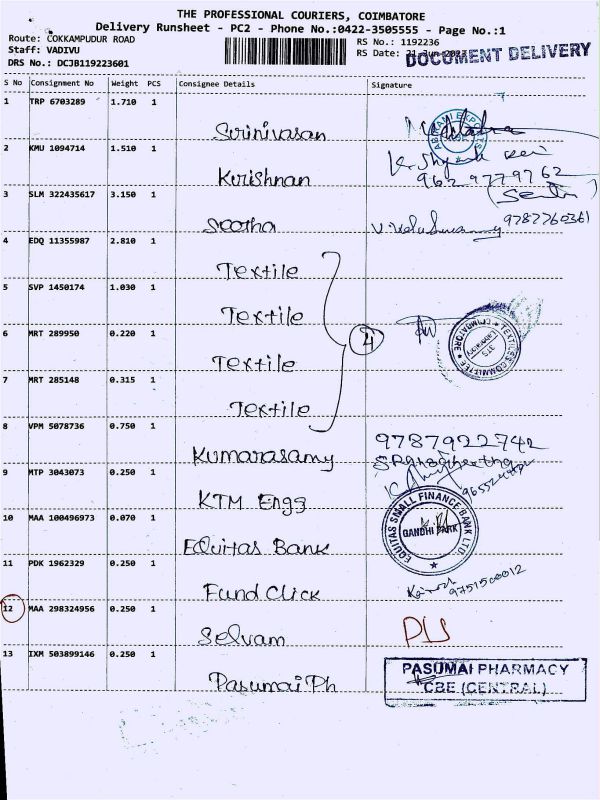 THE PROFESSIONAL COURIERS, COIMBATORE
Delivery Runsheet - PC2 - Phone No.:0422-3505555 - Page No.:1
Route: COKKAMPUDUR ROAD
Staff: VADIVU
DRS No.: DCJB119223601
RS No.: 1192236
RS Date:
DOCUMENT DELIVERY
S No Consignment No Weight PCS Consignee Details Signature
1 TRP 6703289 1.710 1
Srinivasan
2 KMU 1094714 1.510 1
Krishnan
9629779762
3 SLM 322435617 3.150 1
9787760361
4 EDQ 11355987 2.810 1
Textile
5 SVP 1450174 1.030 1
Textile
4
6 MRT 289950 0.220 1
Textile
TEXTILES COMMITTEE
COIMBATORE
7 MRT 285148 0.315 1
Textile
8 VPM 5078736 0.750 1
Kumarasamy
9787922742
9 MTP 3043073 0.250 1
KTM Engg
10 MAA 100496973 0.070 1
Equitas Bank
EQUITAS SMALL FINANCE BANK LTD
GANDHI PARK
11 PDK 1962329 0.250 1
Fund Click
9751500012
12 MAA 298324956 0.250 1
Selvam
13 IXM 503899146 0.250 1
Pasumai Ph
PASUMAI PHARMACY
CBE (CENTRAL)